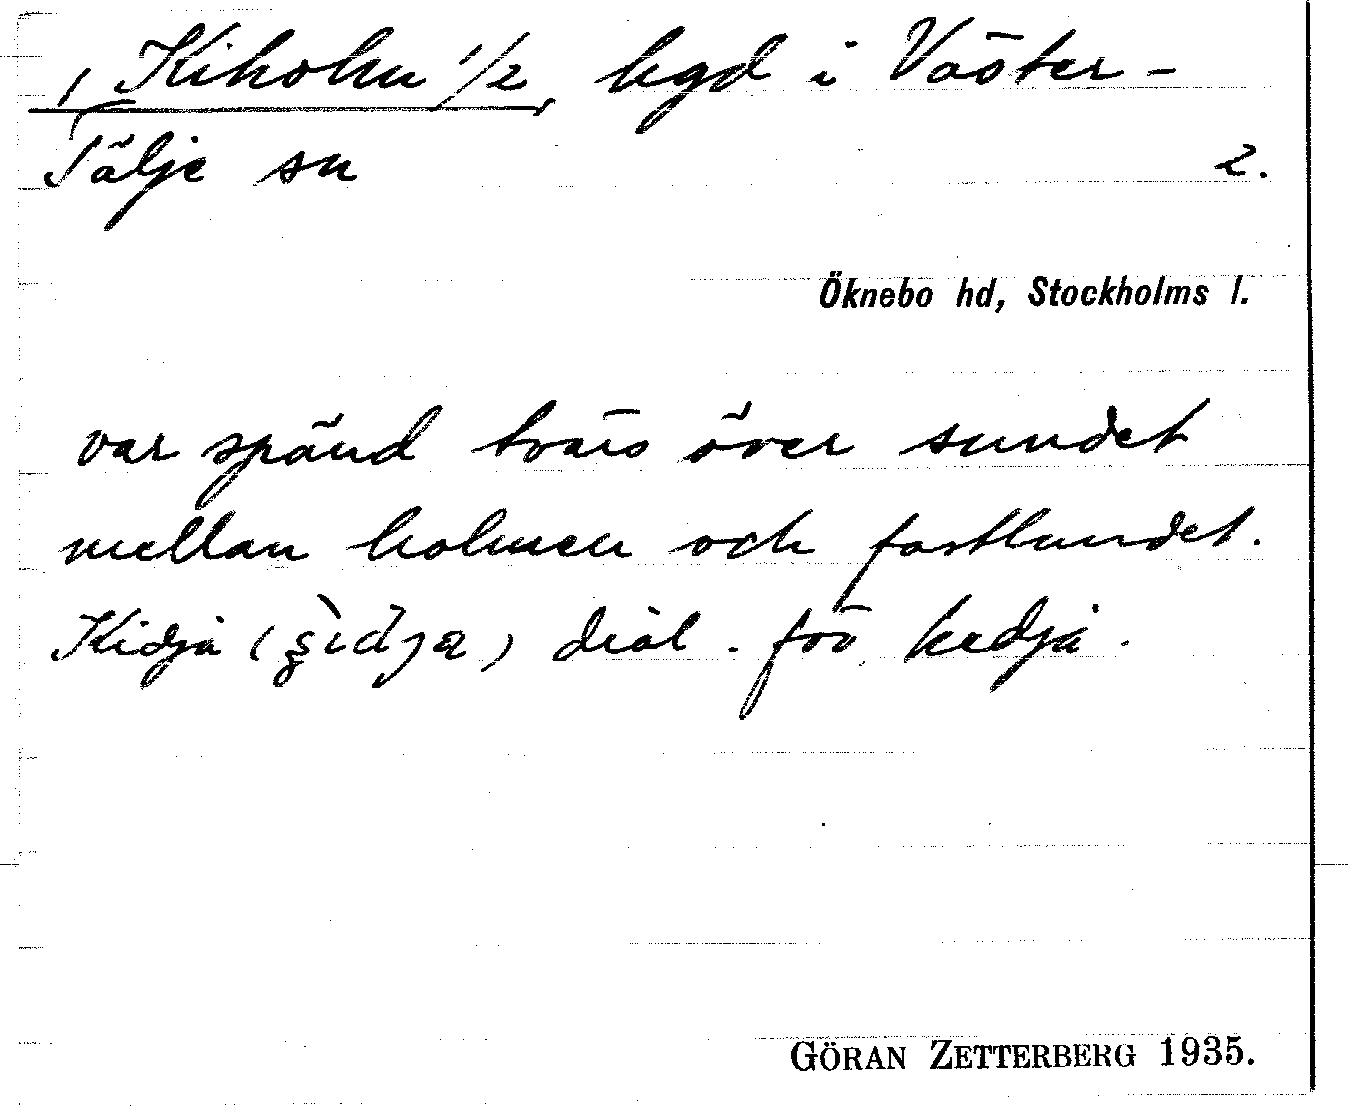 Kiholm 1/2, hgd i Väster-
Tälje sn 2.
Öknebo hd, Stockholms l.
var spänd tvärs över sundet
mellan holmen och fastlandet.
Kidja ( ) dial. för kedja.
GÖRAN ZETTERBERG 1935.